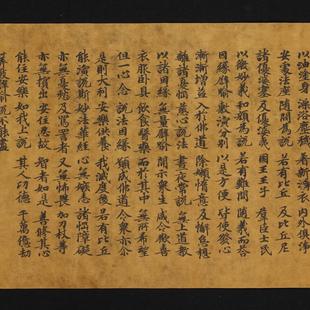 以油塗身 澡浴塵穢 著新淨衣 內外俱淨
安處法座 隨問為說 若有比丘 及比丘尼
諸優婆塞 及優婆夷 國王王子 群臣士民
以微妙義 和顏為說 若有難問 隨義而答
因緣譬喻 敷演分別 以是方便 皆使發心
漸漸增益 入於佛道 除嬾惰意 及懈怠想
離諸憂惱 慈心說法 晝夜常說 無上道教
以諸因緣 無量譬喻 開示眾生 咸令歡喜
衣服臥具 飲食醫藥 而於其中 無所悕望
但一心念 說法因緣 願成佛道 令眾亦尒
是則大利 安樂供養 我滅度後 若有比丘
能演說斯 妙法華經 心無嫉恚 諸惱障礙
亦無憂愁 及罵詈者 又無怖畏 加刀杖等
亦無擯出 安住忍故 智者如是 善修其心
能住安樂 如我上說 其人功德 千萬億劫
算數譬喻 說不能盡